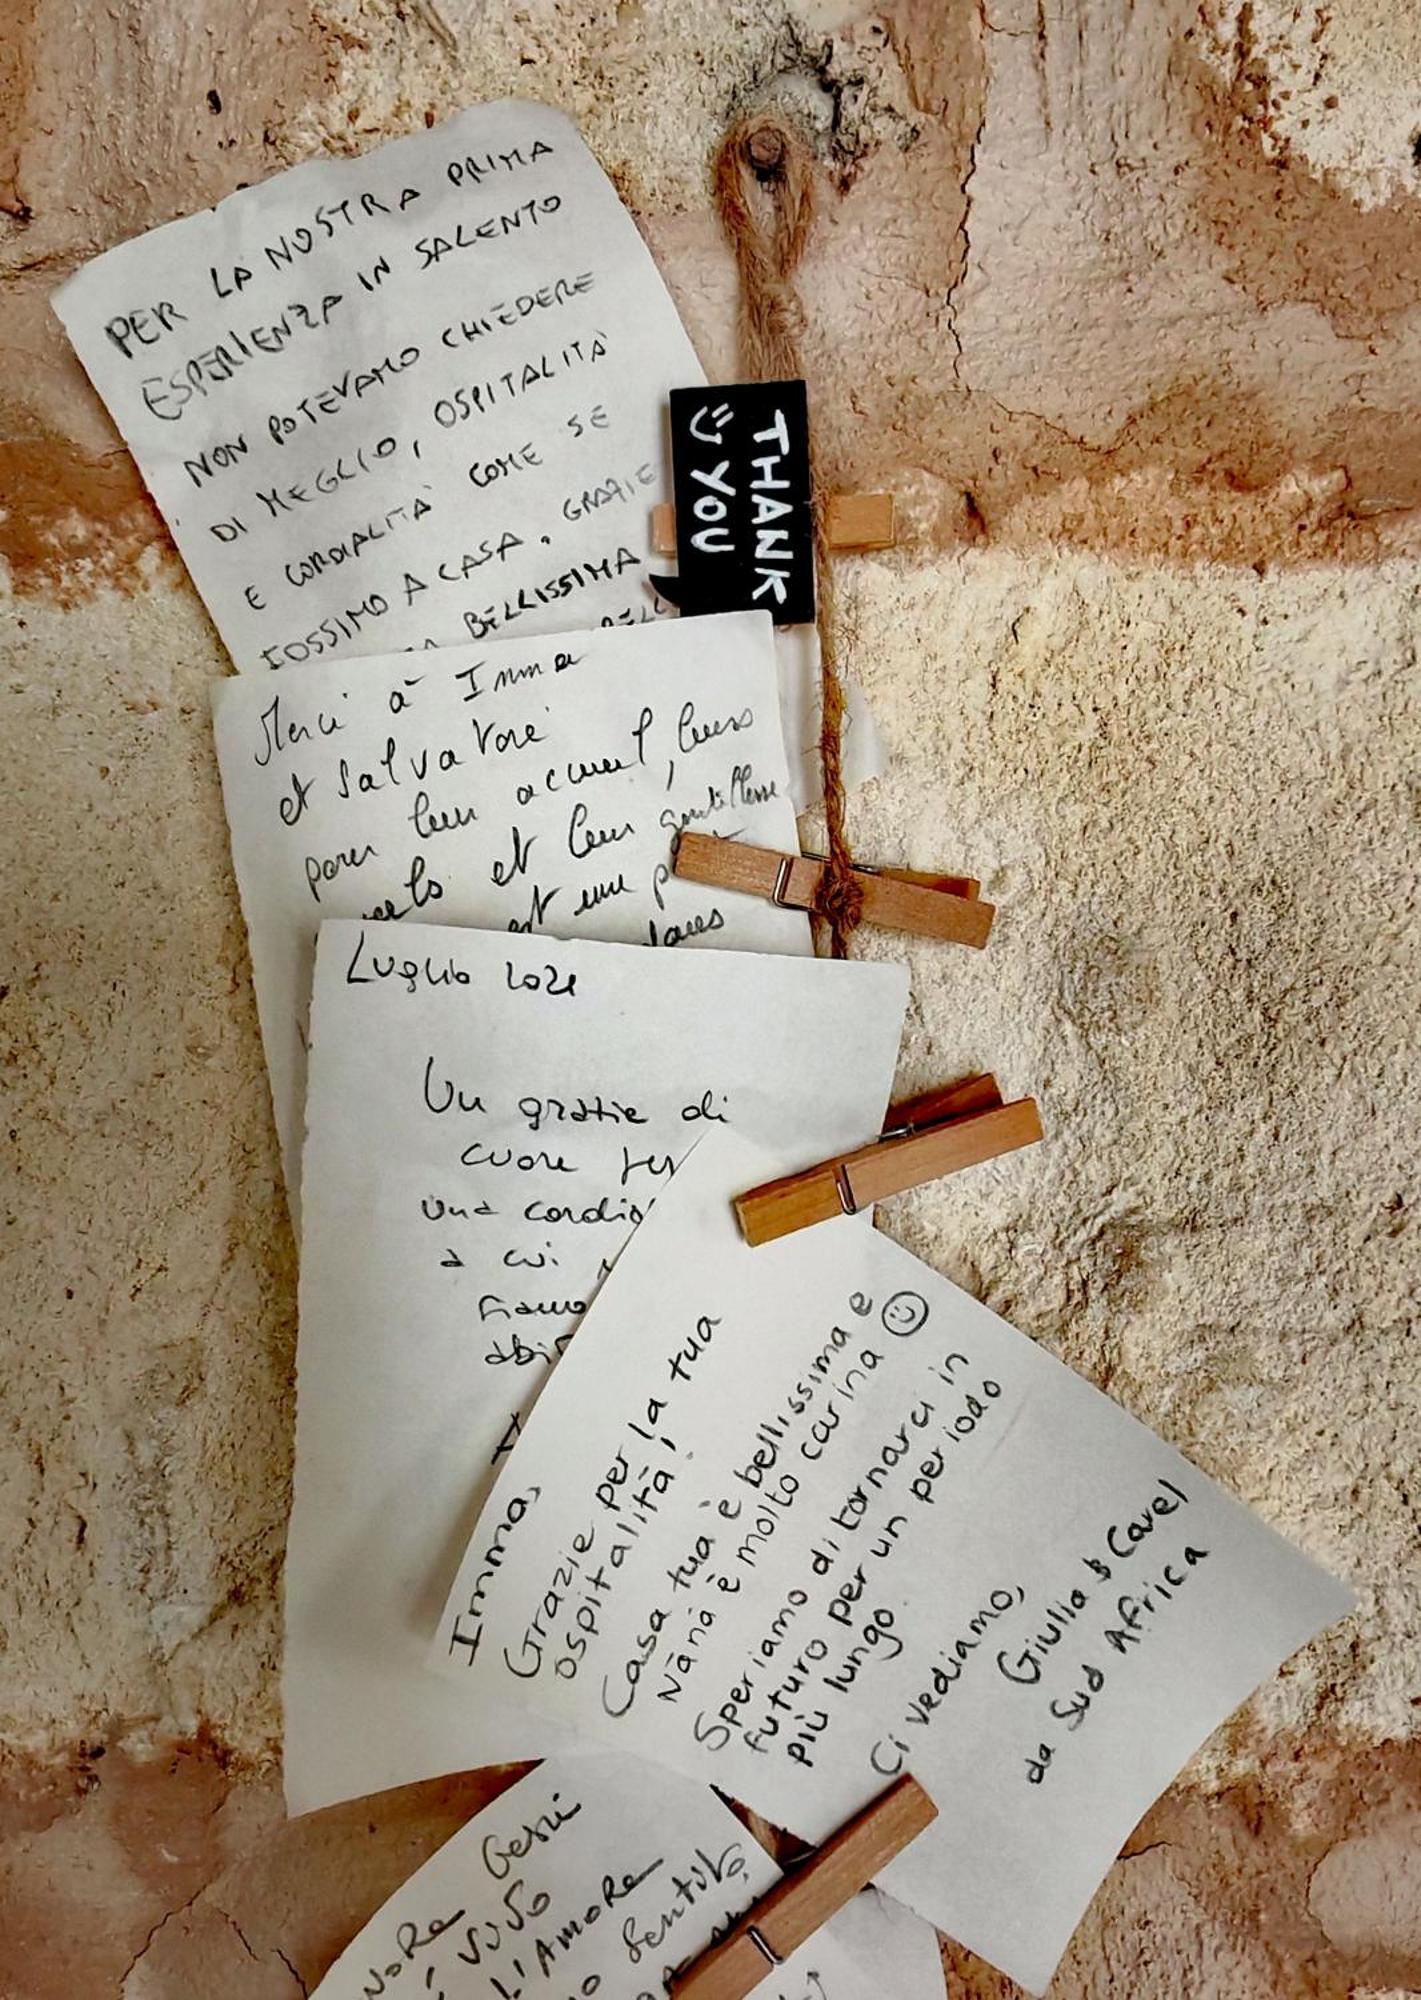 PER LA NOSTRA PRIMA
ESPERIENZA IN SALENTO
NON POTEVAMO CHIEDERE
DI MEGLIO, OSPITALITÀ
E CORDIALITÀ COME SE
FOSSIMO A CASA. GRAZIE
BELLISSIMA
THANK
YOU
Merci à Imma
et Salvatore
pour leur accueil, leurs
et leur gentillesse
est une
dans
Luglio 2021
Un grazie di
cuore per
una cordia
a cui
siamo
abi
Imma,
Grazie per la tua
ospitalità!
Casa tua è bellissima e
Nanà è molto carina ☺
Speriamo di tornarci in
futuro per un periodo
più lungo.
Ci vediamo,
Giulia & Cavel
da Sud Africa
Gesù
L'AMORE